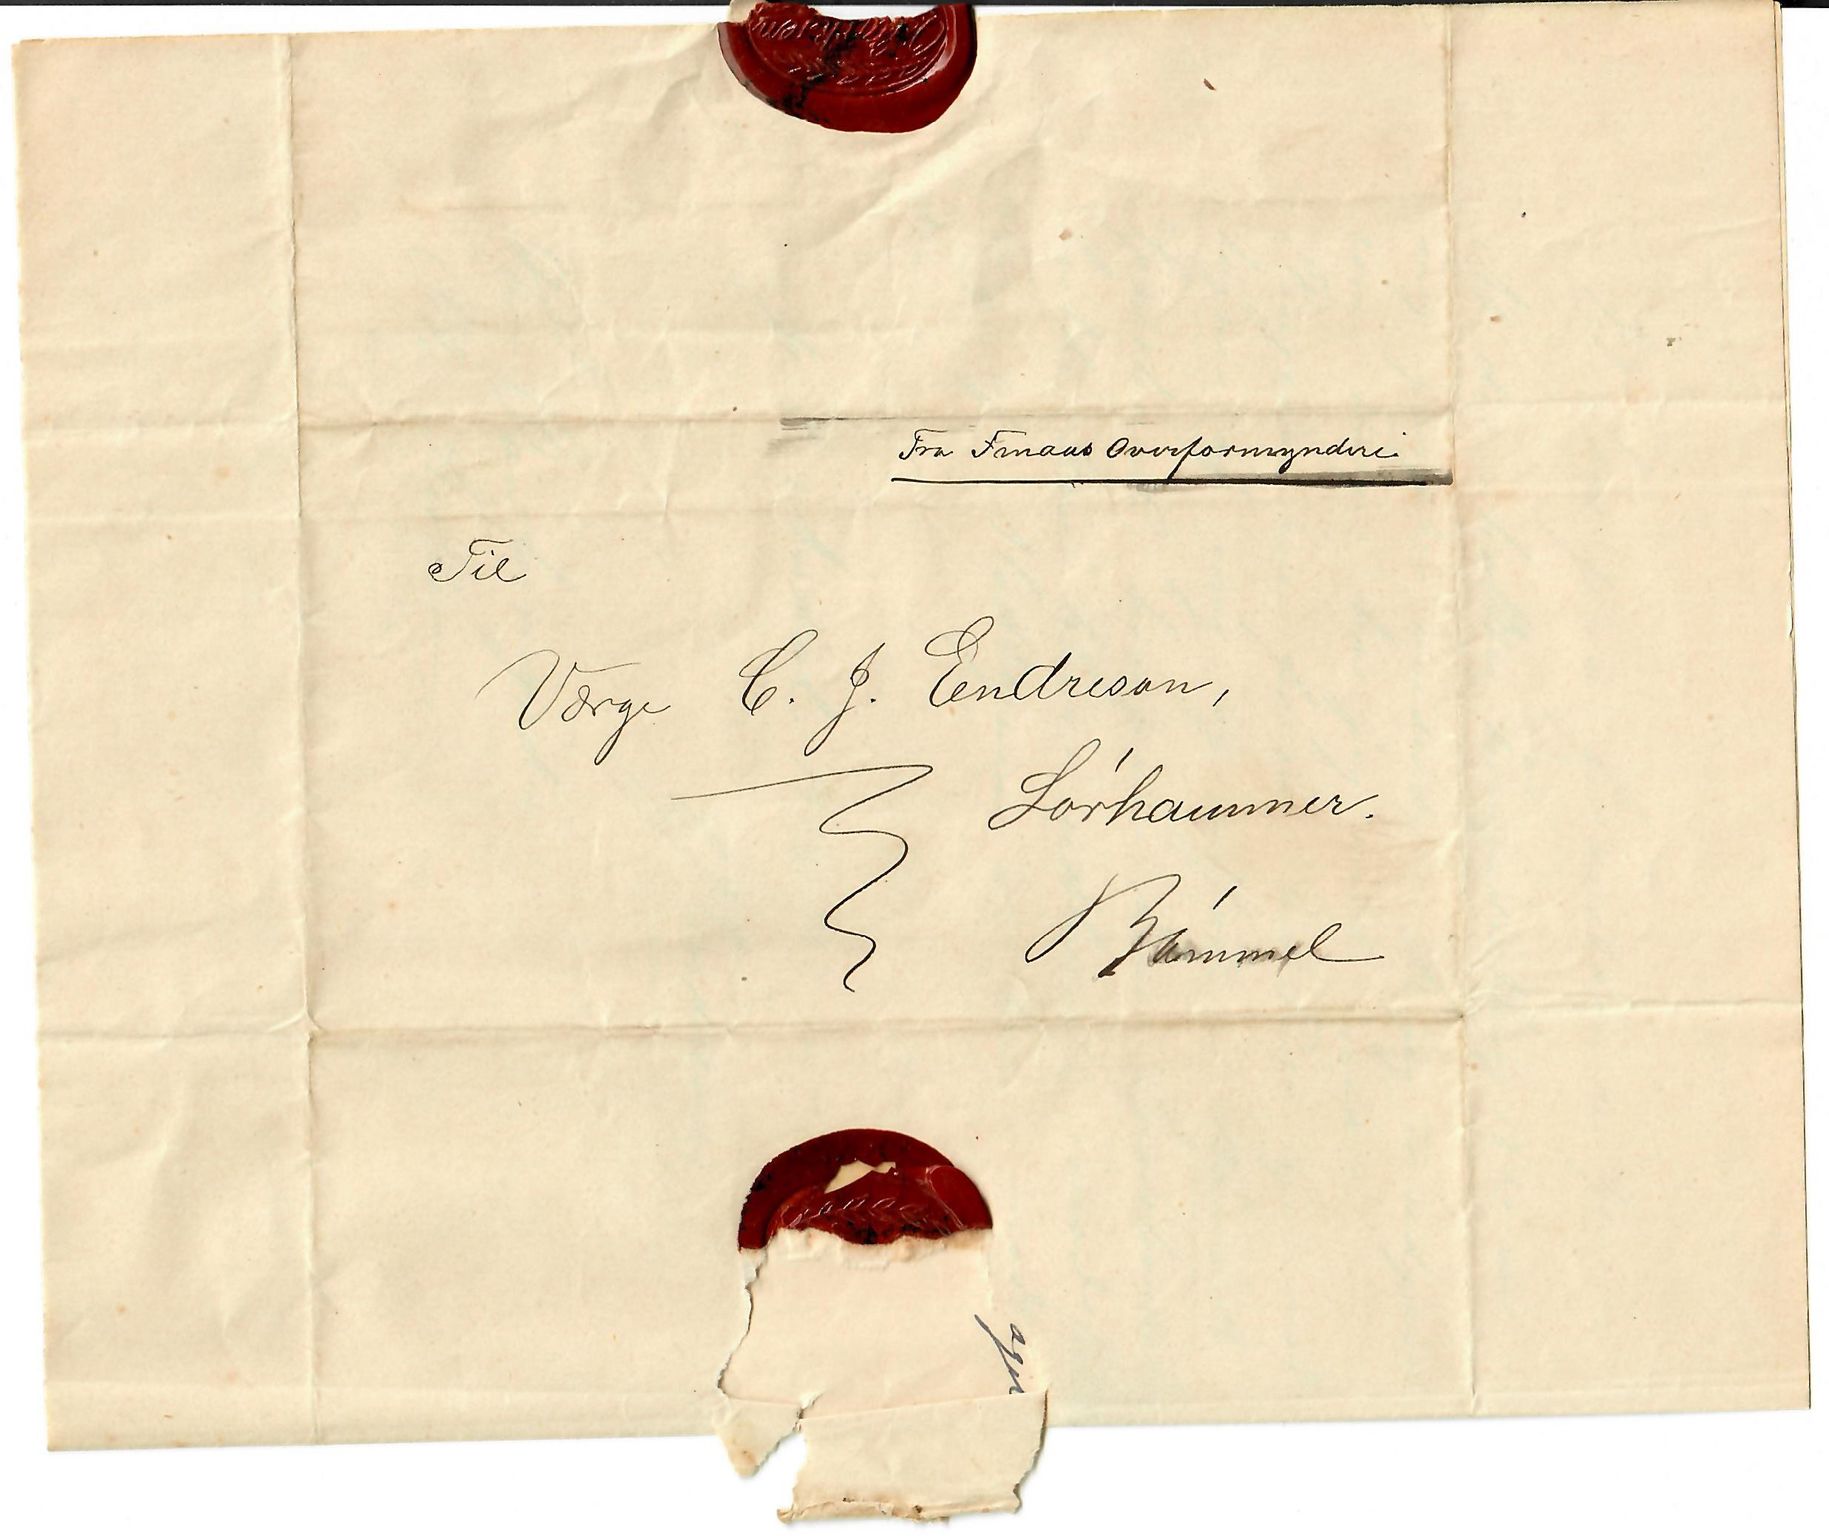 Fra Finaas Overformynderi
Til
Værge C. J. Endreson,
Lórhammer.
Bómmel